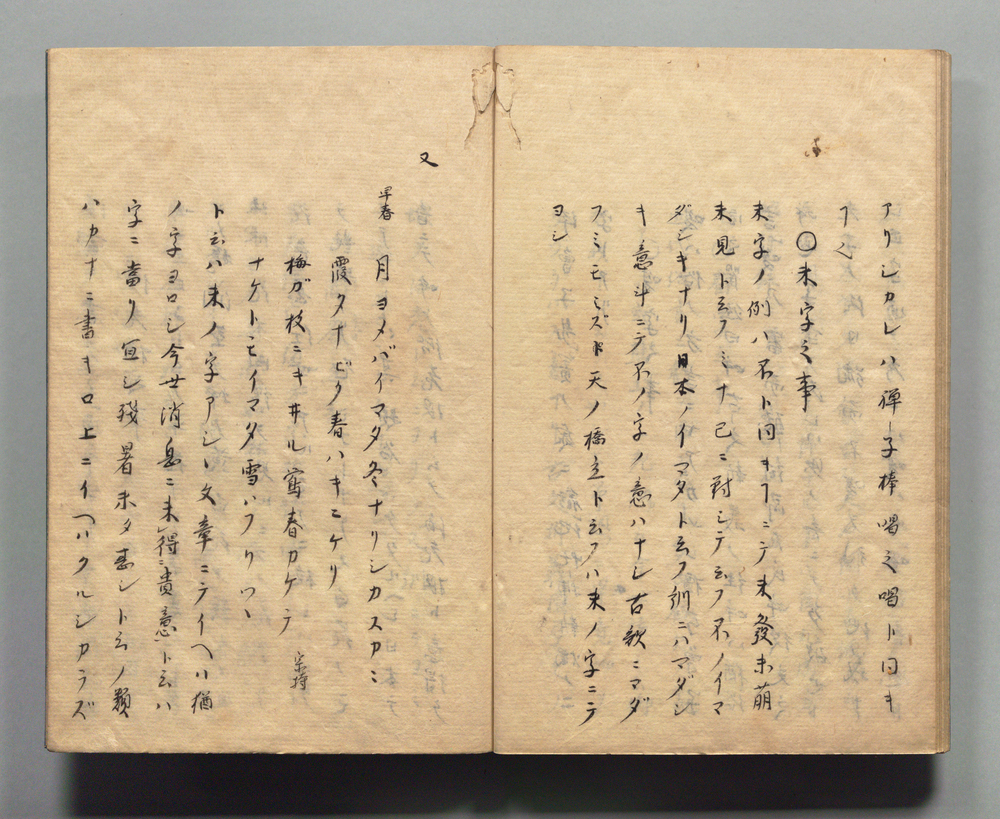 アリシカレハ禅子棒喝之喝ト同キ
ヿ〱
○未字之事
未字ノ例ハ不ト同キヿニテ未發未萌
未見ト云フミナ已ニ對シテ云フ不ノイマ
ダシキナリ日本ノイマタト云フ訓ニハマダシ
キ意斗ニテ不ノ字ノ意ハナシ古歌ニマダ
フミモミズ天ノ橋立ト云フハ未ノ字ニテ
ヨシ
又
早春 月ヨメバイマタ冬ナリシカスカニ
霞タナビク春ハキニケリ
梅ガ枝ニキ井ル鴬春カケテ
ナケトモイマタ雪ハフリツヽ
宗時
ト云ハ未ノ字アシヽ文章ニテイヘハ猶
ノ字ヨロシ今世消息ニ未得貴意ト云ハ
字ニ當リ宜シ殘暑未タ甚シト云ノ類
ハカナニ書キ口上ニイヘハクルシカラズ